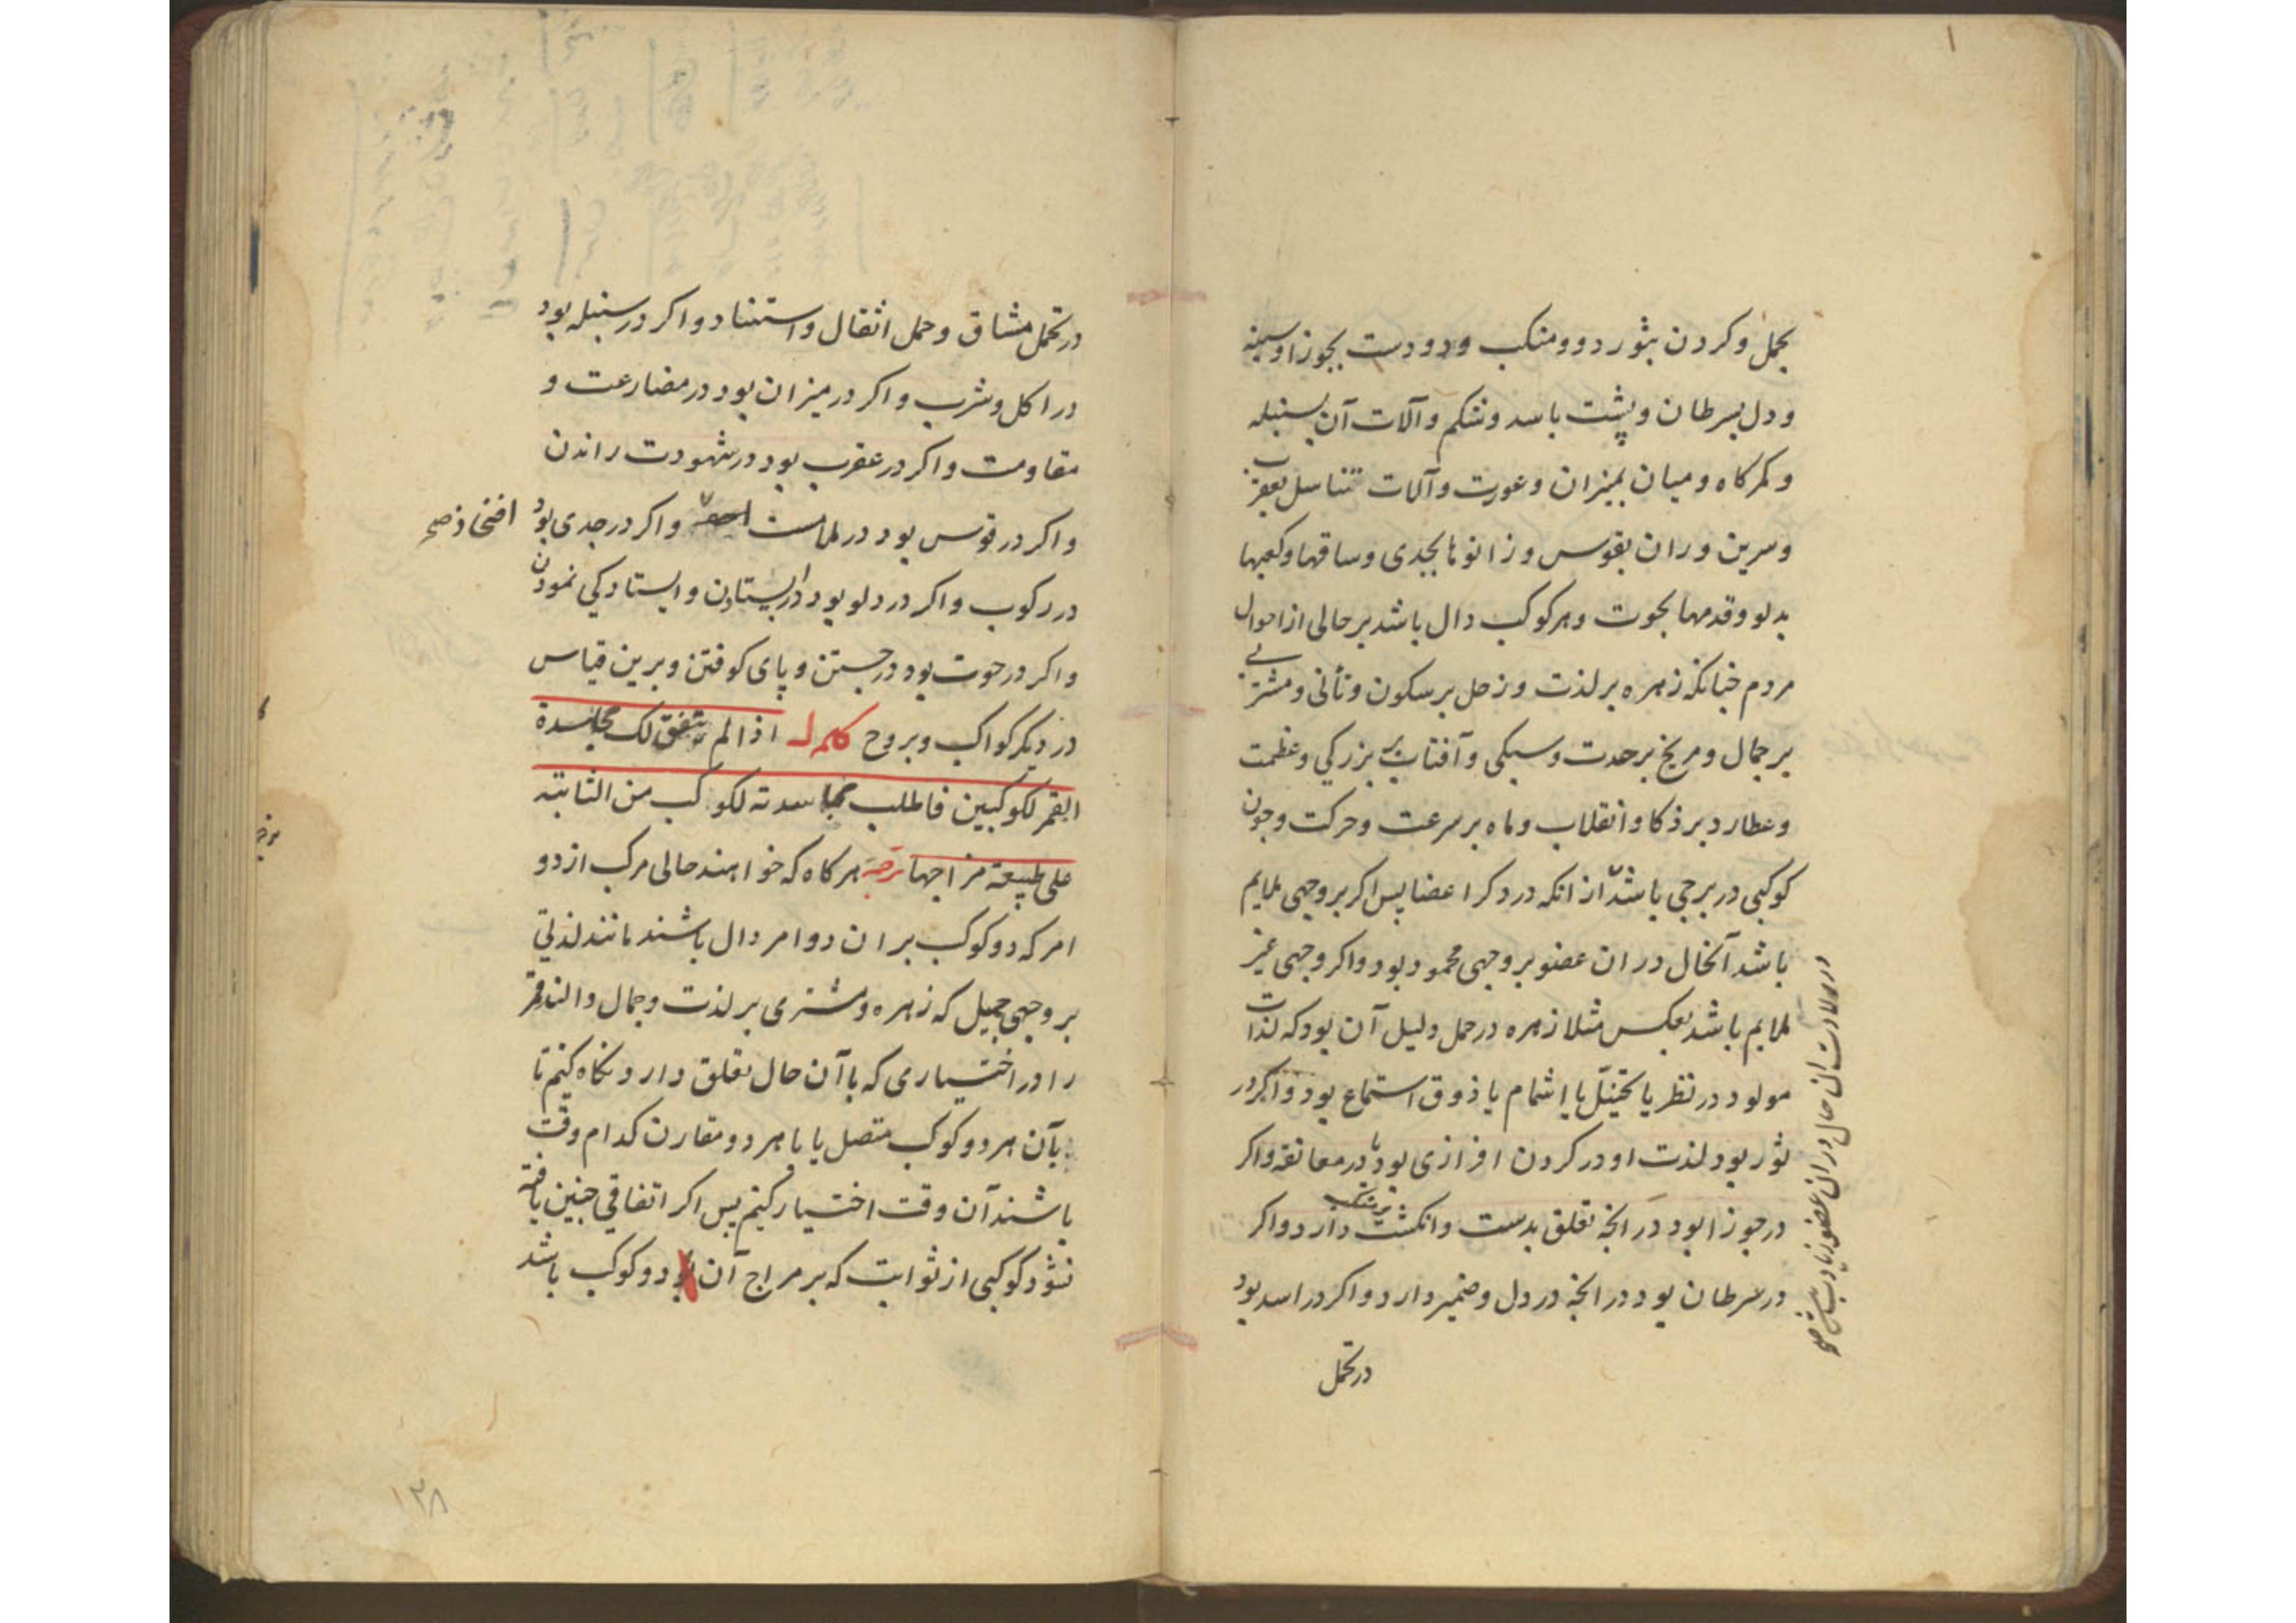 بحمل و کردن بثور و دو منکب و دو دست بجوزا و سینه
و دل بسرطان و پشت باسد و شکم و آلات آن بسنبله
و کمرکاه و میان بمیزان و عورت و آلات تناسل بعقرب
و سرین و ران بقوس و زانوها بجدی و ساقها و کعبها
بدلو و قدمها بحوت و هر کوکب دال باشد بر حالی از احوال
مردم جنانکه زهره بر لذت و زحل بر سکون و تأنی و مشتری
بر جمال و مریخ بر حدت و سبکی و آفتاب بر بزرکی و عظمت
و عطارد بر ذکا و انقلاب و ماه بر سرعت و حرکت و جون
کوکبی در برجی باشد از انکه در دکر اعضا پس اکر بر وجهی ملایم
باشد آنحال در ان عضو بر وجهی محمود بود و اکر وجهی غیر
ملایم باشد بعکس مثلا زهره در حمل دلیل آن بود که لذات
مولود در نظر یا تخیّل یا اشمام یا ذوق استماع بود و اکر در
ثور بود لذت او در کردن افرازی بود یا در معانقه و اکر
در جوزا بود در انجه تعلق بدست و انکشت دارد و اکر
در سرطان بود در انجه در دل و ضمیر دارد و اکر در اسد بود
در تحمل
در ولادت ان حال در ان عضو زیادت باشد صح
در تحمل مشاق و حمل اثقال و استناد و اکر در سنبله بود
در اکل و شرب و اکر در میزان بود در مضارعت و
مقاومت و اکر در عقرب بود در شهوت راندن
و اکر در قوس بود در ملامست و اکر در جدی بود
افخاذ صح
در رکوب و اکر در دلو بود در ایستادن و ایستادکی نمودن
و اکر در حوت بود در جستن و پای کوفتن و برین قیاس
در دیکر کواکب و بروج کلمه ل اذا لم یتفق لک مجاسدة
القمر لکوکبین فاطلب مجاسدته لکوکب من الثابتة
علی طبیعة مزاجها ترجمه هرکاه که خواهند حالی مرکب از دو
امر که دو کوکب بر ان دو امر دال باشند مانند لذتی
بر وجهی جمیل که زهره و مشتری بر لذت و جمال دالند قمر
را در اختیاری که با آن حال تعلق دارد نکاه کنیم تا
بآن هر دو کوکب متصل یا با هر دو مقارن کدام وقت
باشند آن وقت اختیار کنیم پس اکر اتفاقی جنین یافته
نشود کوکبی از ثوابت که بر مزاج آن دو کوکب باشد
۱۳۸